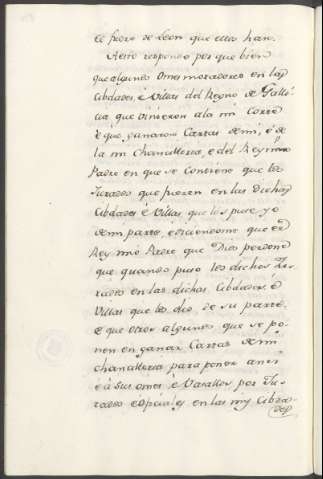 el fuero de Leon que ellos han.
A esto respondo por que bien
que algunos Omes moradores en las
Cibdades, é Villas del Regno de Galli-
cia que vinieron a la mi Corte
é que ganaron Cartas de mi, é de
la mi Chancelleria, é del Rey mio
Padre en que se contiene que los
Jurados que fuezen en las dichas
Cibdades é Villas, que los puse yo
de mi parte, é diciendome que el
Rey mio Padre que Dios perdone
que quando puso los dichos Ju-
rados en las dichas Cibdades é
Villas que los dio de su parte.
é que otros algunos que se po-
nen en ganar Cartas de mi
chancelleria para poner ansi
é á sus omes, é Vasallos por Ju-
rados especiales en las mis Cibda-
des